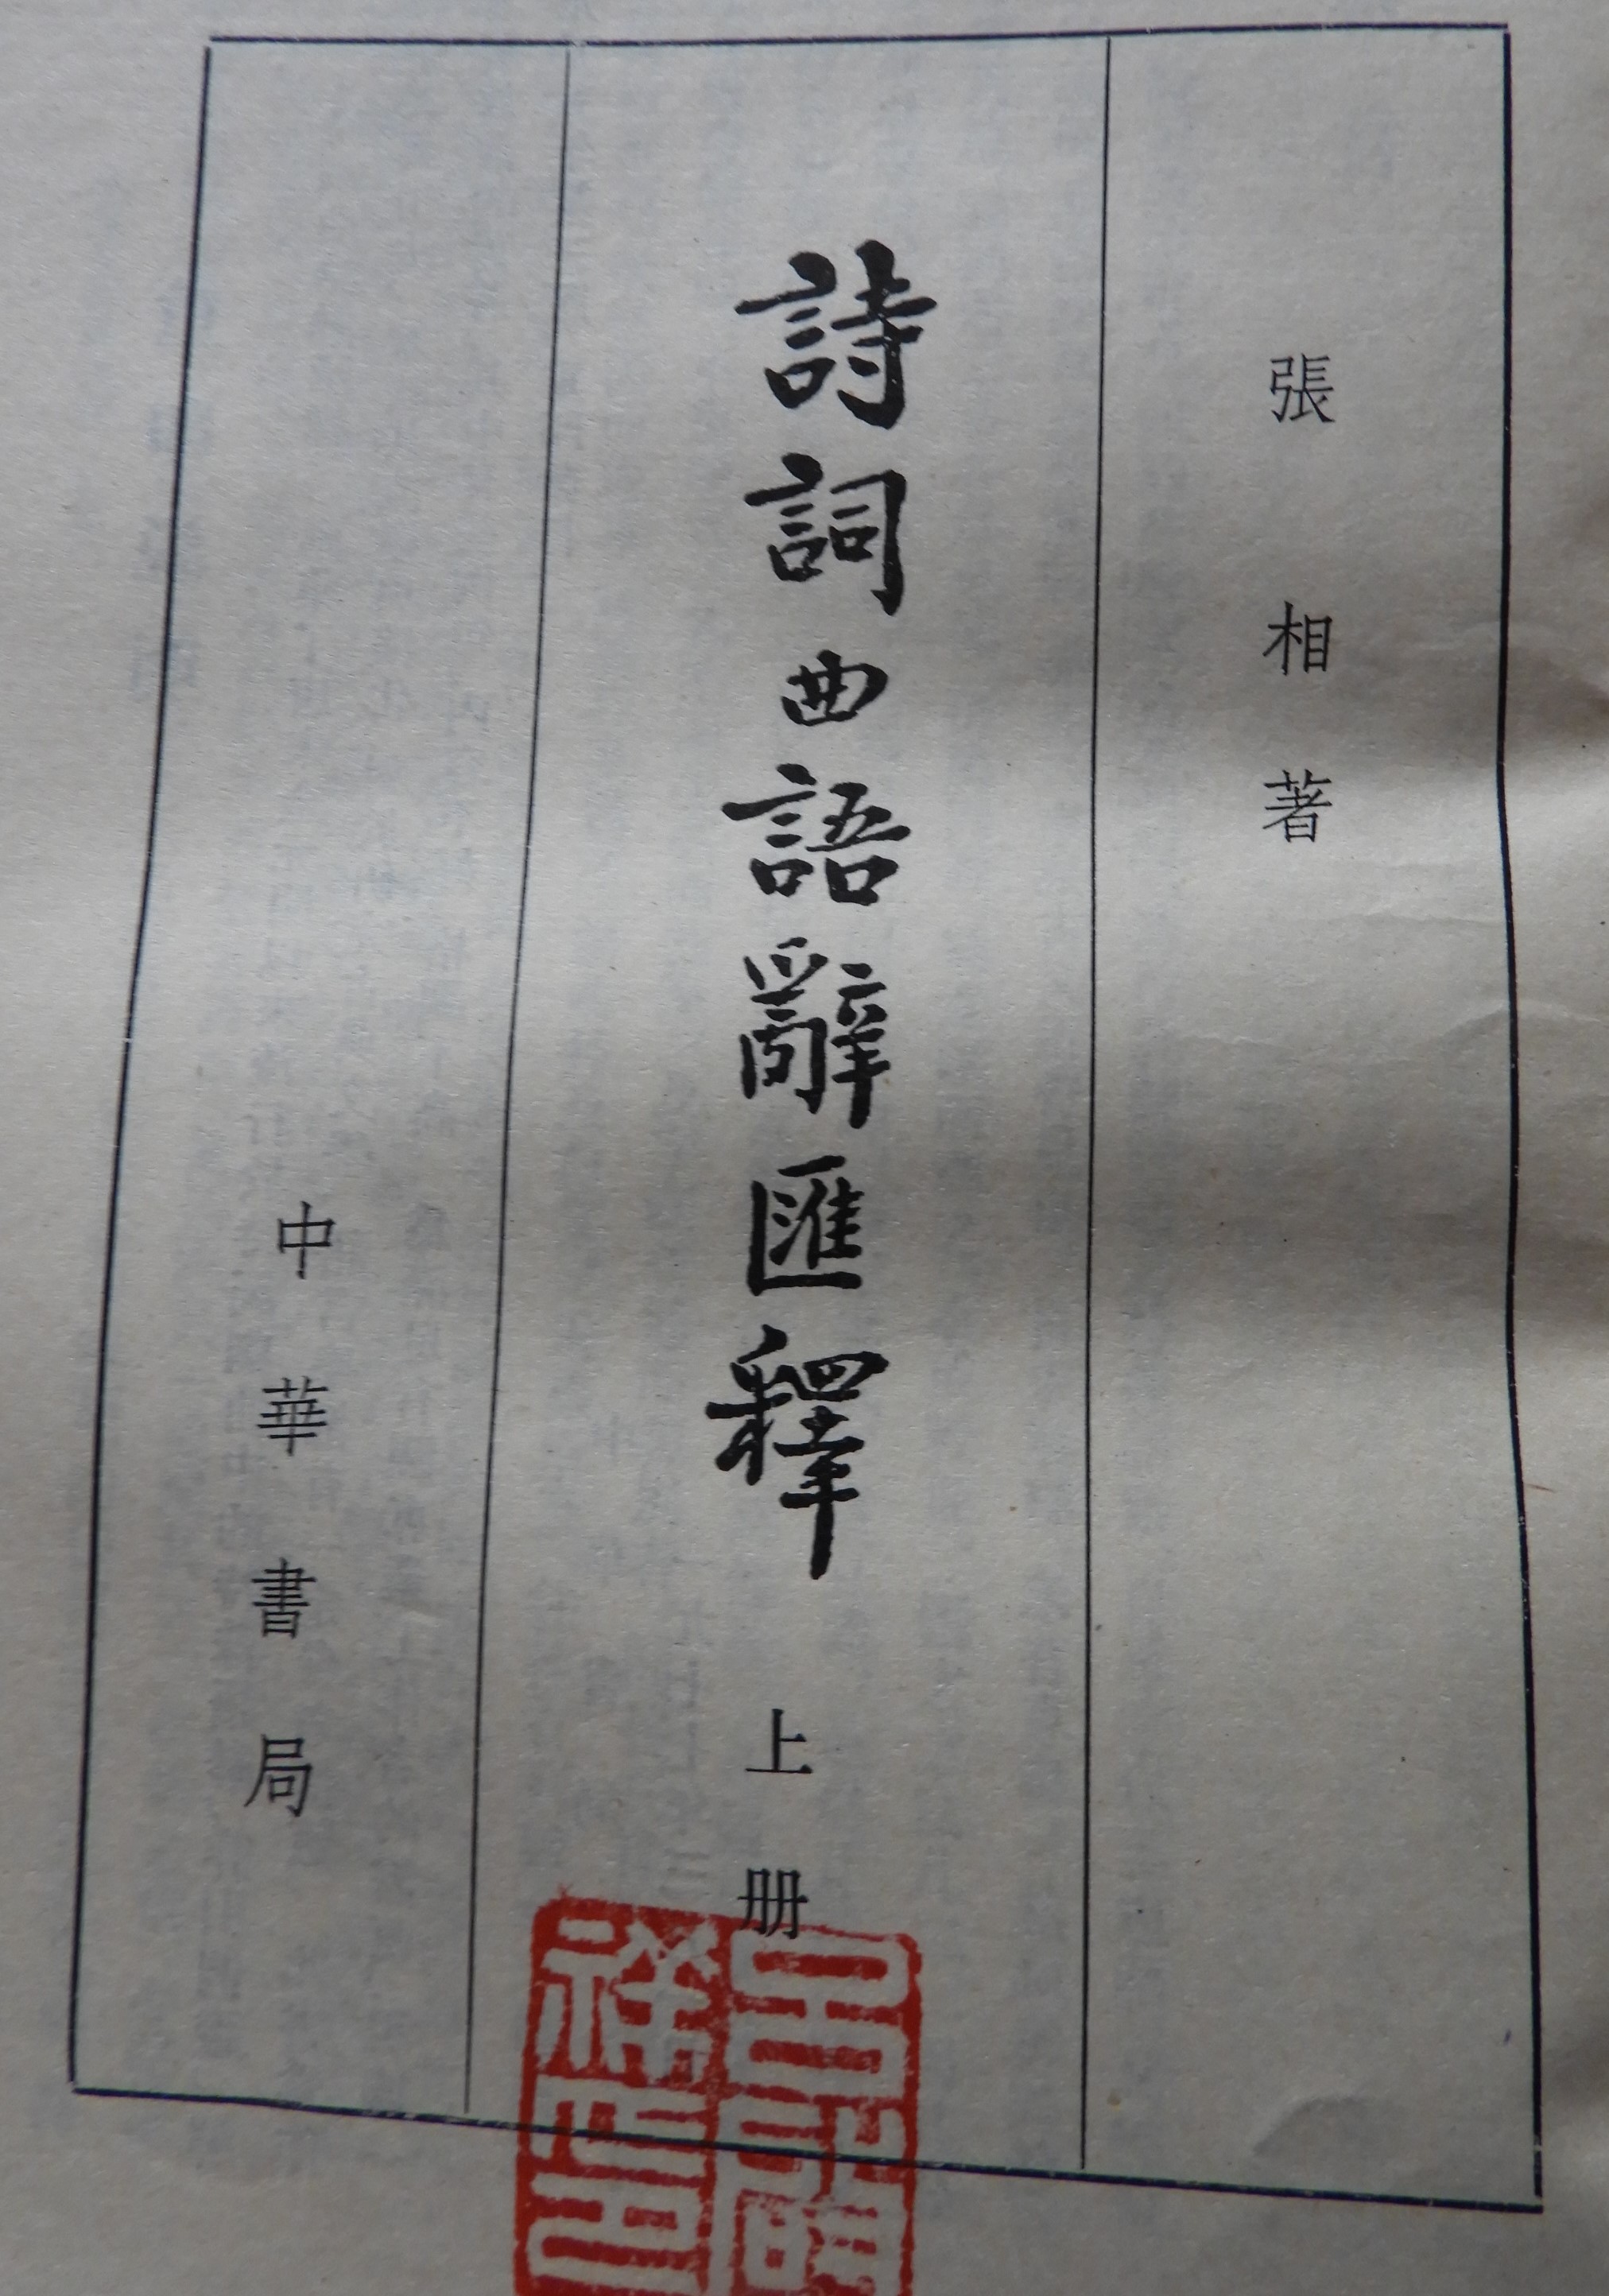 張相著
詩詞曲語辭匯釋 上册
中華書局